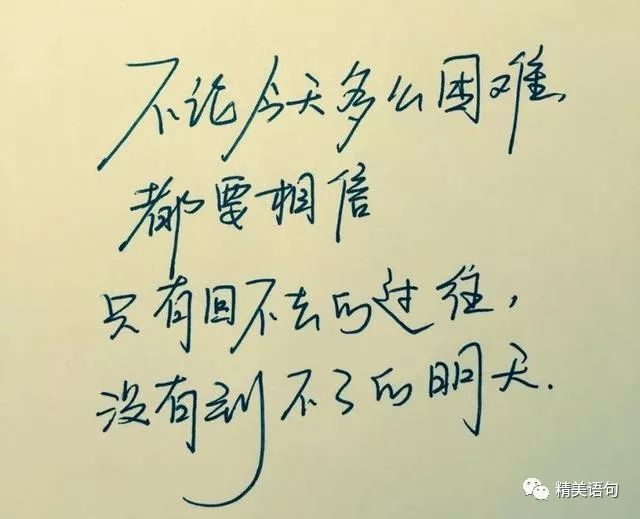 不论今天多么困难
都要相信
只有回不去的过往,
没有到不了的明天.
精美语句